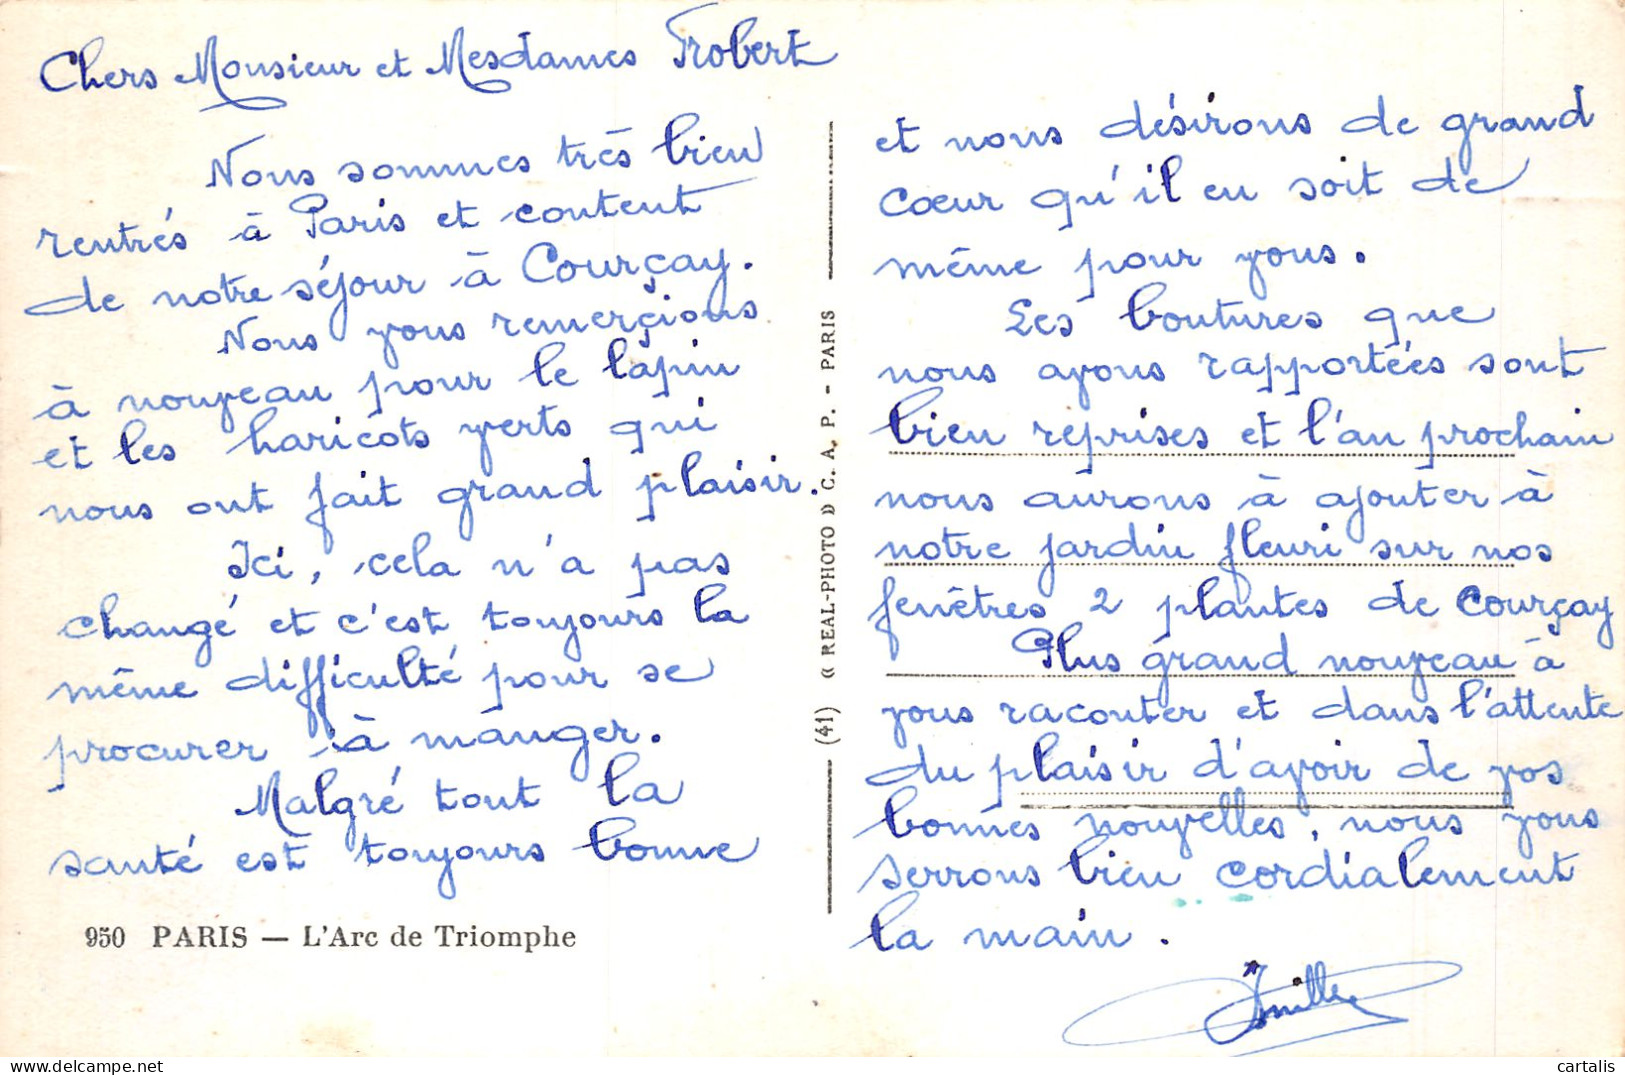 Chers Monsieur et Mesdames Trobert
Nous sommes très bien
rentrés à Paris et content
de notre séjour à Courçay.
Nous vous remerçions
à nouveau pour le lapin
et les haricots verts qui
nous ont fait grand plaisir.
Ici, cela n'a pas
changé et c'est toujours la
même difficulté pour se
procurer à manger.
Malgré tout la
santé est toujours bonne
950 PARIS — L'Arc de Triomphe
(41) « REAL-PHOTO » C. A. P. - PARIS
et nous désirons de grand
cœur qu'il en soit de
même pour vous.
Les boutures que
nous avons rapportées sont
bien reprises et l'an prochain
nous aurons à ajouter à
notre jardin fleuri sur nos
fenêtres 2 plantes de Courçay
Plus grand nouveau à
vous raconter et dans l'attente
du plaisir d'avoir de vos
bonnes nouvelles, nous vous
serrons bien cordialement
la main.
cartalis